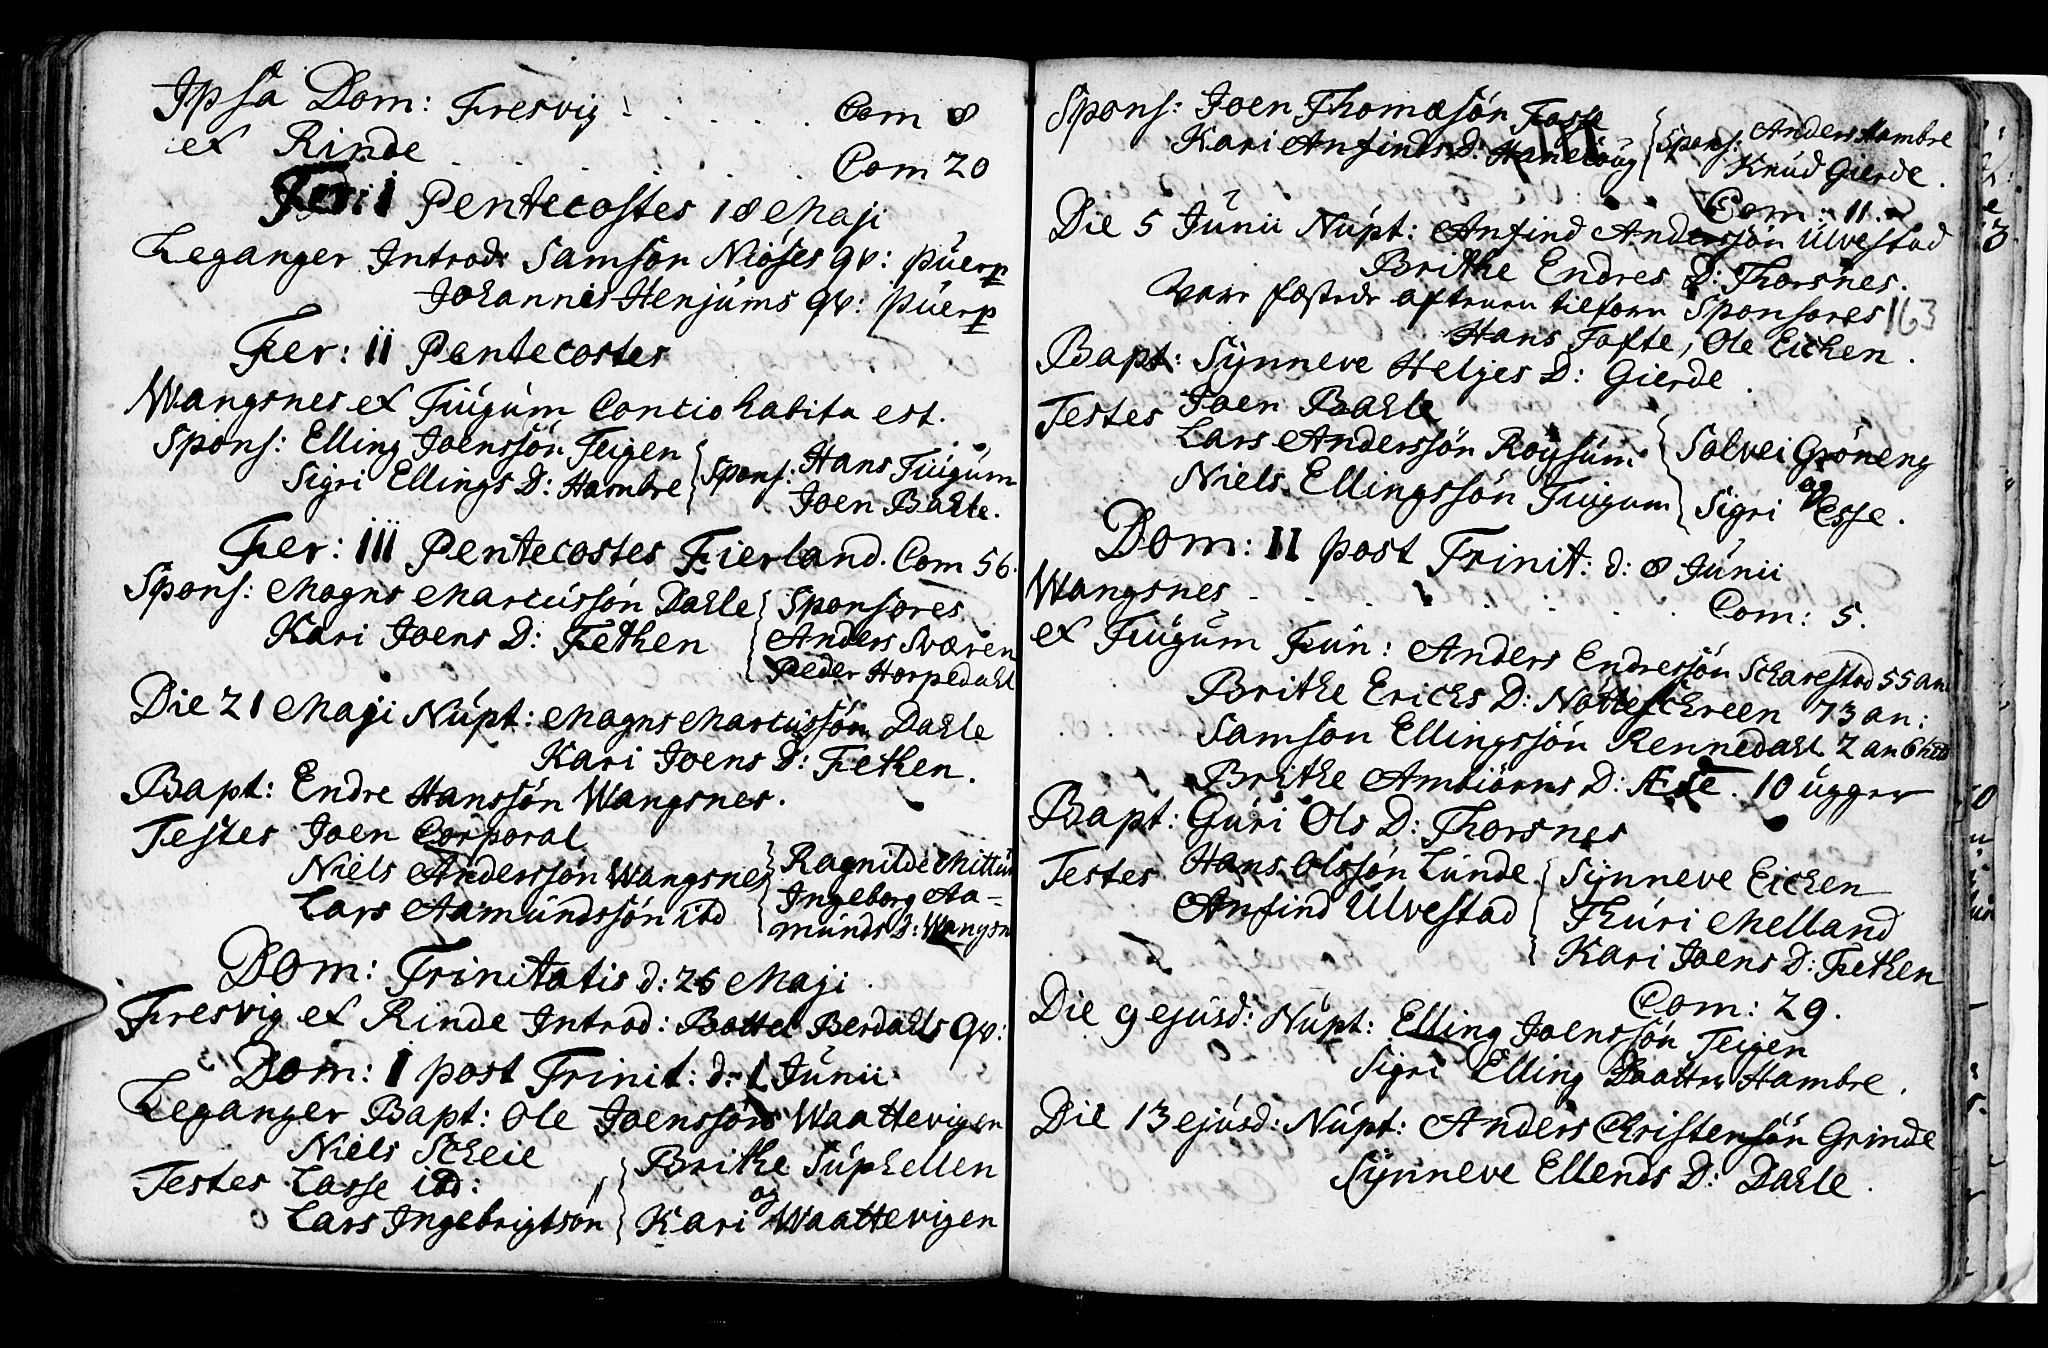 Ipsa Dom: Fresvig . . . . . Com 8
et Rinde . . . . . . Com 20
Feri: I Pentecostes 18 Maji
Leganger Introd: Samson Niøses qv: puerp
Johannis Henjums qv: puerp
Fer: II Pentecostes
Wangsnes et Fúgúm Concio habita est.
Spons: Elling Joenssøn Teigen
Sigri Ellings D: Hambre
Spons: Hans Fúgúm
Joen Bahle.
Fer: III Pentecostes Fierland. Com 56.
Spons: Magns Marcússøn Dahle
Kari Joens D: Fethen
Sponsores
Anders Sværen
Peder Horpedahl
Die 21 Maji Núpt: Magns Marcússøn Dahle
Kari Joens D: Fethen.
Bapt: Endre Hanssøn Wangsnes.
Testes Joen Corporal
Niels Anderssøn Wangsnes
Lars Aamúndssøn ibd
Ragnilde Mittún
Ingeborg Aa-
múnds D: Wangsn
Dom: Trinitatis d: 26 Maji.
Fresvig et Rinde Introd: Bottel Berdahls qv:
Dom: I post Trinit: d: 1 Júnii
Leganger Bapt: Ole Joenssøn Waattevigen
Niels Scheie
Testes Lasse ibd:
Lars Ingebrigtsøn
Brithe Súphellen
og
Kari Waattevigen
Spons: Joen Thomæsøn Fosse
Kari Anfinds D: Hanehoúg
Spons: Anders Hambre
Knúd Gierde.
Com: 11.
Die 5 Júnii Núpt: Anfind Anderssøn Ulvestad
Brithe Endres D: Thorsnes.
vare fæstede aftenen tilforn Sponsores
163
Hans Tofte, Ole Eichen.
Bapt: Synneve Heljes D: Gierde.
Testes Joen Bahle
Lars Anderssøn Røysúm
Niels Ellingssøn Fúgúm
Solvei Grøneng
og
Sigri Esse.
Dom: II post Trinit: d: 8 Júnii
Wangsnes . . . . . . Com: 5.
et Fúgúm Fún: Anders Endressøn Scharestad 55 an
Brithe Erichs D: Notteschreen 73 an:
Samson Ellingssøn Rennedahl 2 an 6
Brithe Ambiørns D: Æse. 10 úgger
Bapt: Gúri Ols D: Thorsnes
Testes Hans Olssøn Lúnde
Anfind Ulvestad
Synneve Eichen
Thúri Melland
Kari Joens D: Fethen
Com: 29.
Die 9 ejúsd: Núpt: Elling Joenssøn Teigen
Sigri Elling Daatter Hambre.
Die 13 ejúsd: Núpt: Anders Christensøn Grinde
Synneve Ellends D: Dahle.